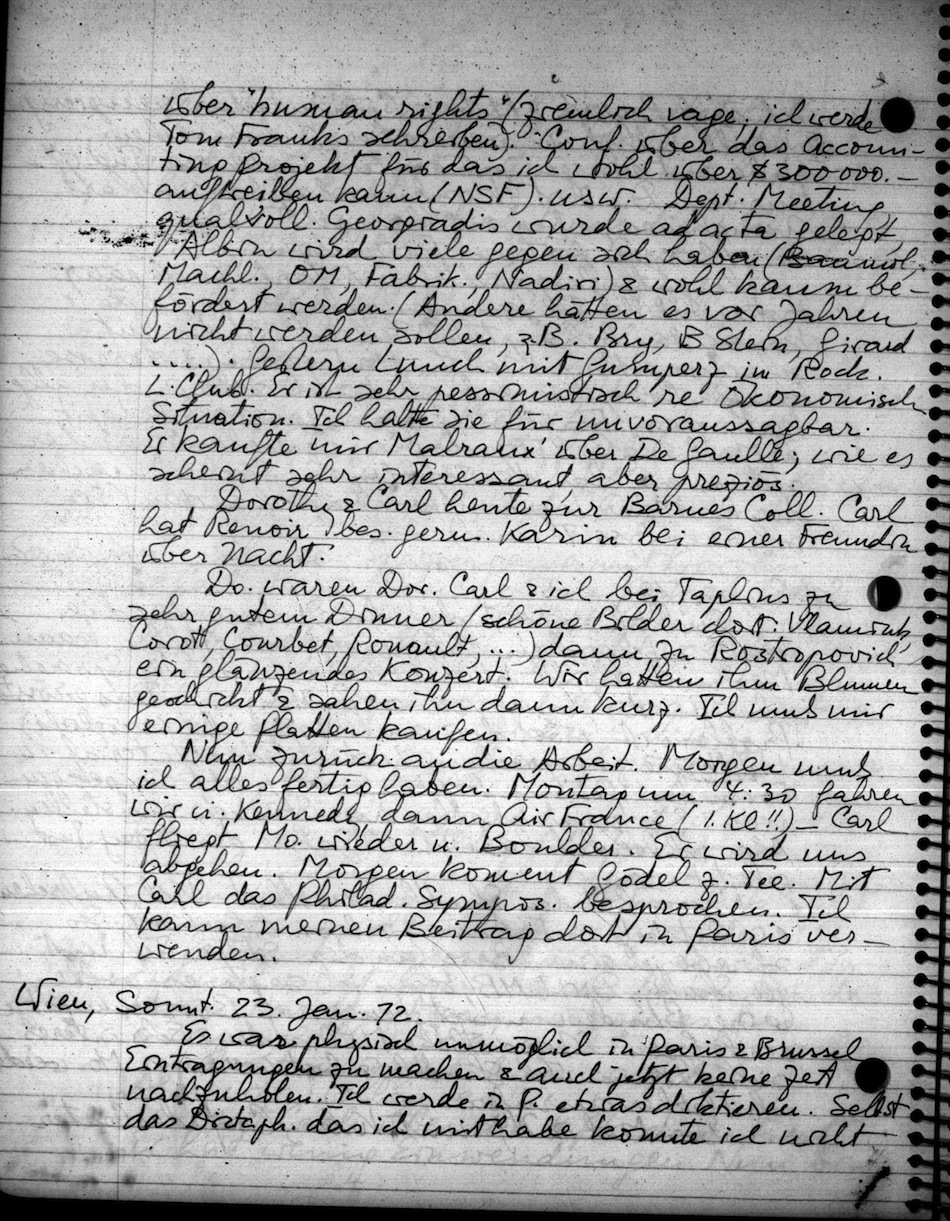 über "human rights" (ziemlich vage, ich werde
Tom Franks schreiben). Conf. über das Accoun-
ting projekt für das ich wohl über $300000.–
auftreiben kann (NSF). usw. Dept. Meeting
qualvoll. Georgiadis wurde ad acta gelegt,
Albin wird viele gegen sich haben (Baumol,
Machl., OM, Fabrik., Nadiri) & wohl kaum be-
fördert werden. (Andere hätten es vor Jahren
nicht werden sollen, z.B. Bry, B Stein, Girard
....). Gestern Lunch mit Gumperz im Rock.
L. Club. Er ist sehr pessimistisch re Ökonomisch
Situation. Ich halte sie für unvoraussagbar.
Er kaufte mir Malraux' über De Gaulle; wie es
scheint sehr interessant, aber preziös.
Dorothy & Carl heute zur Barnes Coll. Carl
hat Renoir bes. gern. Karin bei einer Freundin
über Nacht.
Do. waren Dor. Carl & ich bei Taplins zu
sehr gutem Dinner (schöne Bilder dort: Vlamink,
Corott, Courbet, Rouault, ...) dann zu Rostropovich
ein glänzendes Konzert. Wir hatten ihm Blumen
geschickt & sahen ihn dann kurz. Ich muß mir
einige Platten kaufen.
Nun zurück an die Arbeit. Morgen muß
ich alles fertig haben. Montag um 4:30 fahren
wir n. Kennedy dann Air France (1. Kl!!) – Carl
fliegt Mo. wieder n. Boulder. Er wird uns
abgehen. Morgen kommt Gödel z. Tee. Mit
Carl das Philad. Sympos. besprochen. Ich
kann meinen Beitrag dort in Paris ver-
wenden.
Wien, Sonnt. 23. Jan. 72.
Es war physisch unmöglich in Paris & Brussel
Eintragungen zu machen & auch jetzt keine Zeit
nachzuholen. Ich werde in P. etwas diktieren. Selbst
das Dictaph. das ich mithabe konnte ich nicht